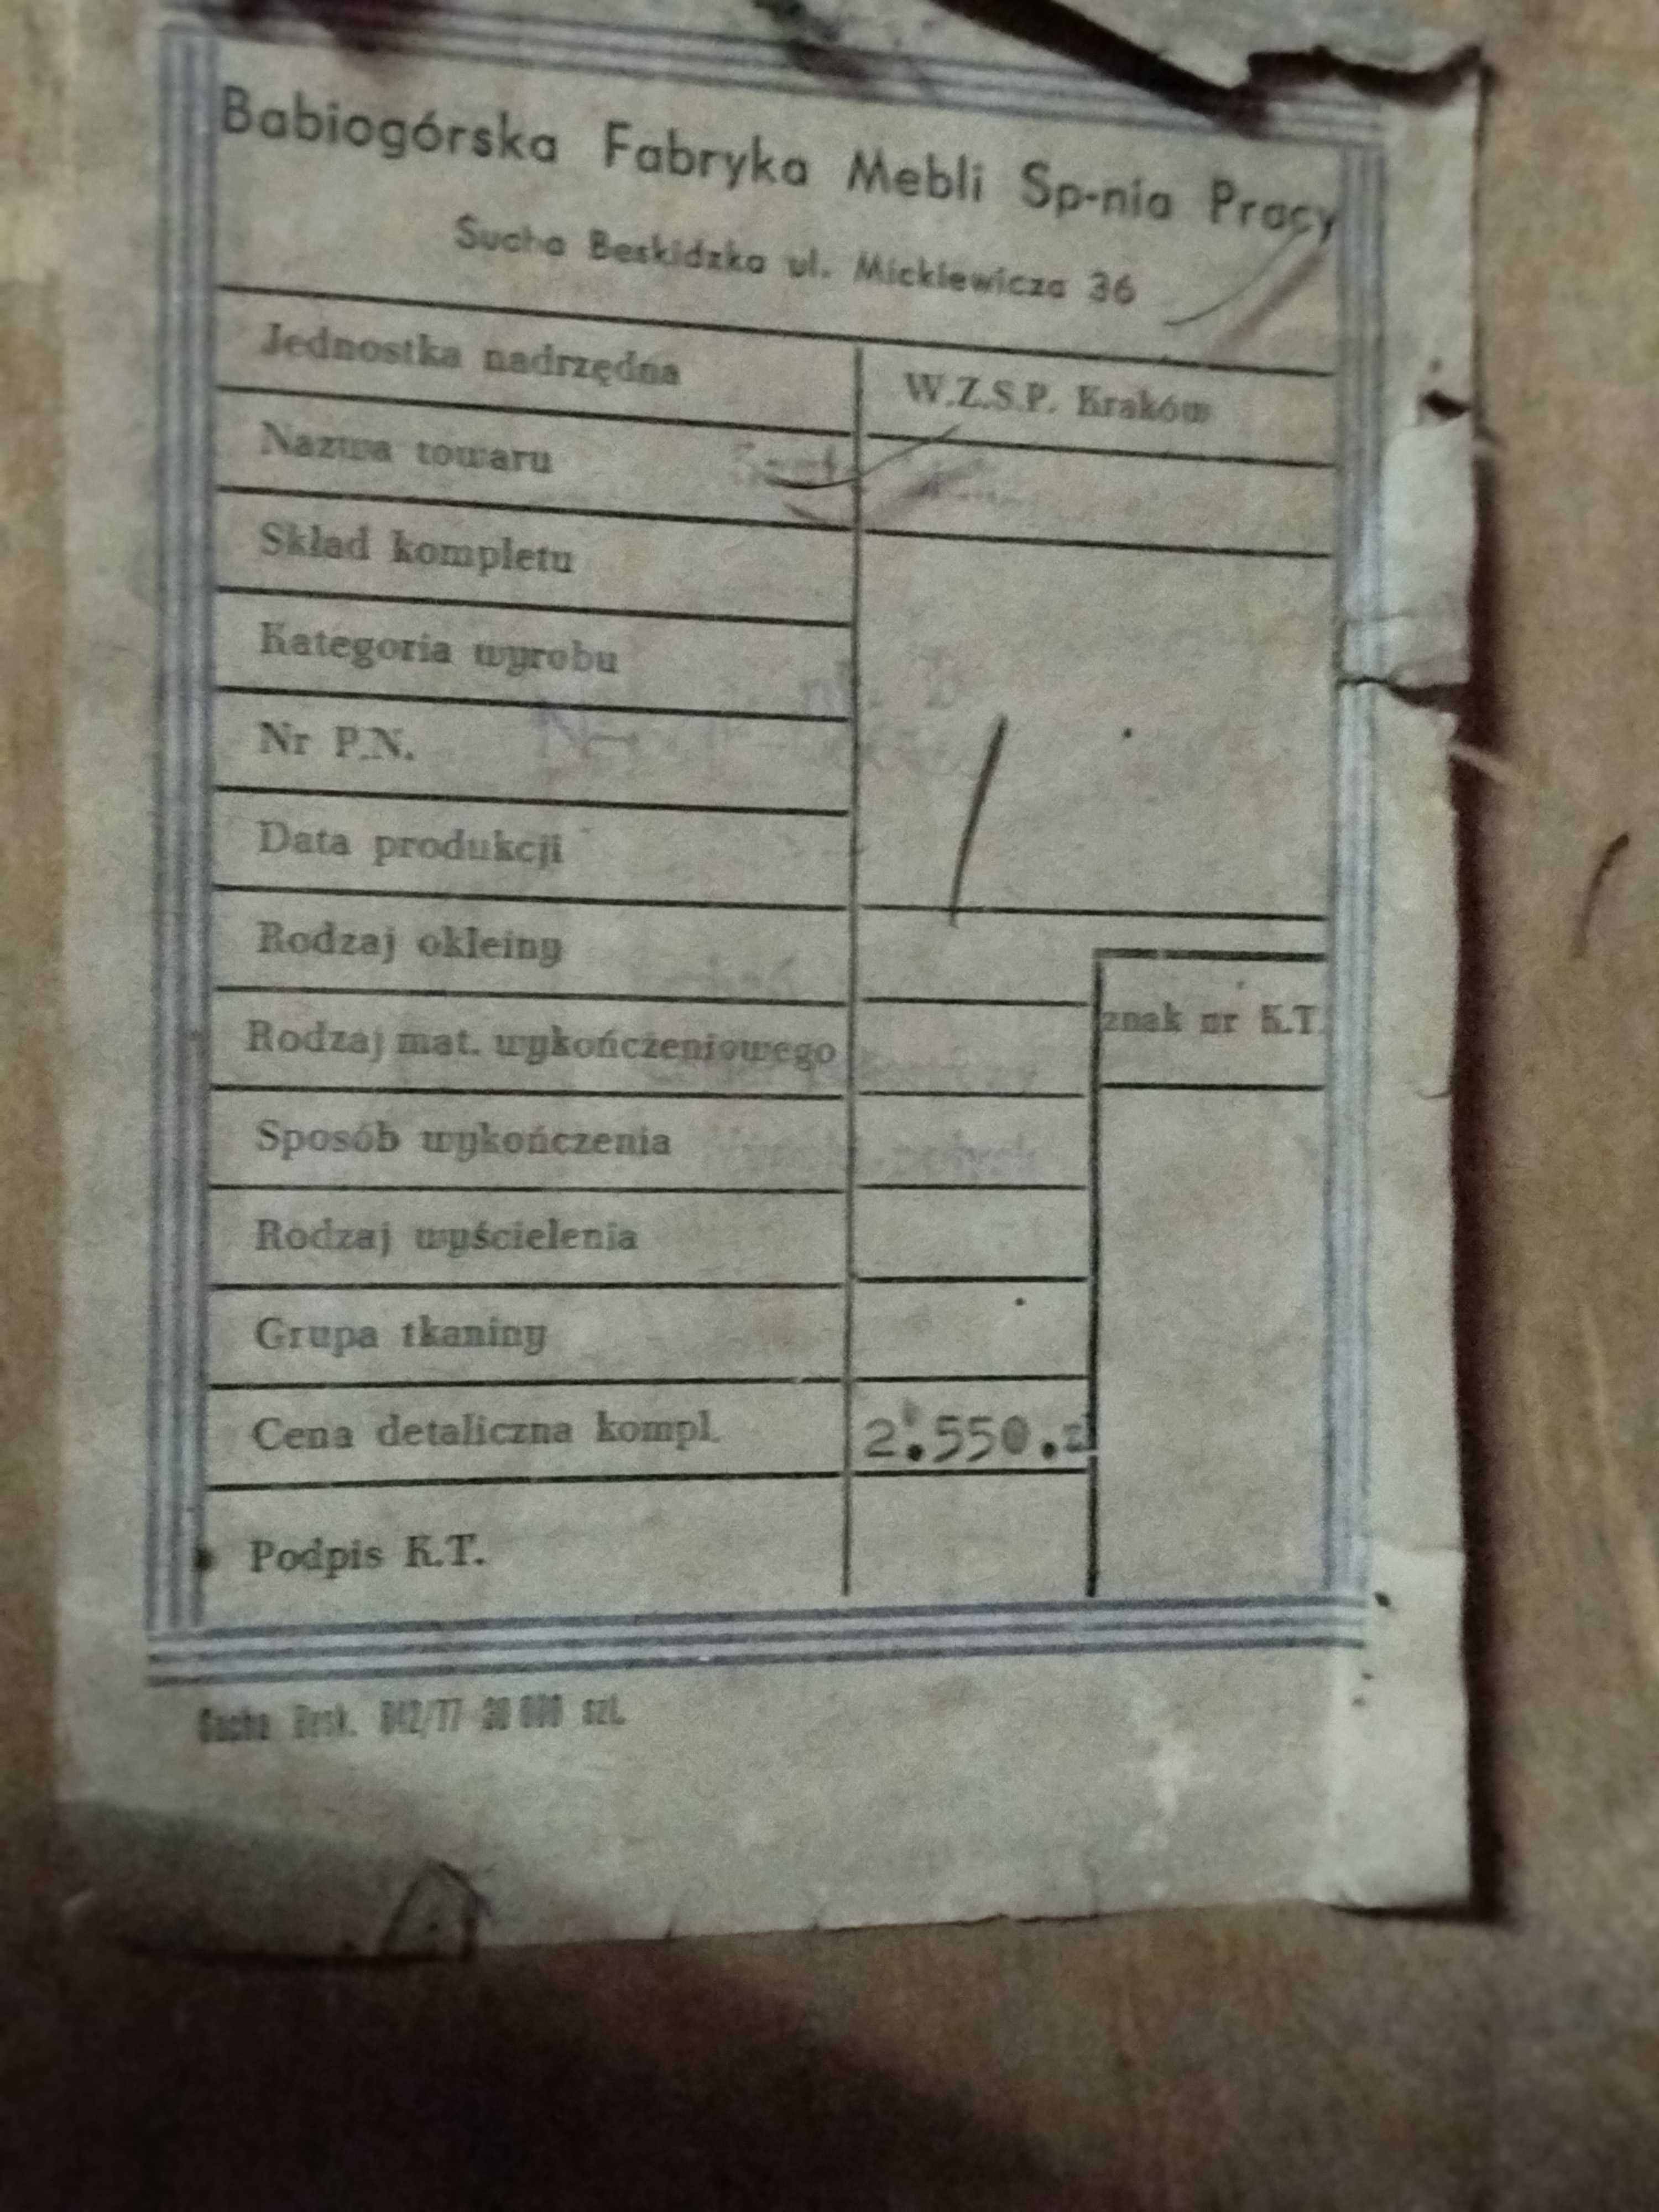 Babiogórska Fabryka Mebli Sp-nia Pracy
Sucha Beskidzka ul. Mickiewicza 36
Jednostka nadrzędna W.Z.S.P. Kraków
Nazwa towaru
Skład kompletu
Kategoria wyrobu
Nr P.N.
Data produkcji
Rodzaj okleiny
znak nr K.T.
Rodzaj mat. wykończeniowego
Sposób wykończenia
Rodzaj wyścielenia
Grupa tkaniny
Cena detaliczna kompl. 2.550.zł
Podpis K.T.
Sucha Besk. 842/77 30 000 szt.